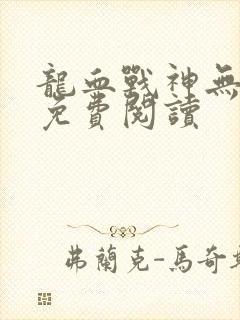 龍血戰神無
免費閱讀
弗蘭克-馬奇